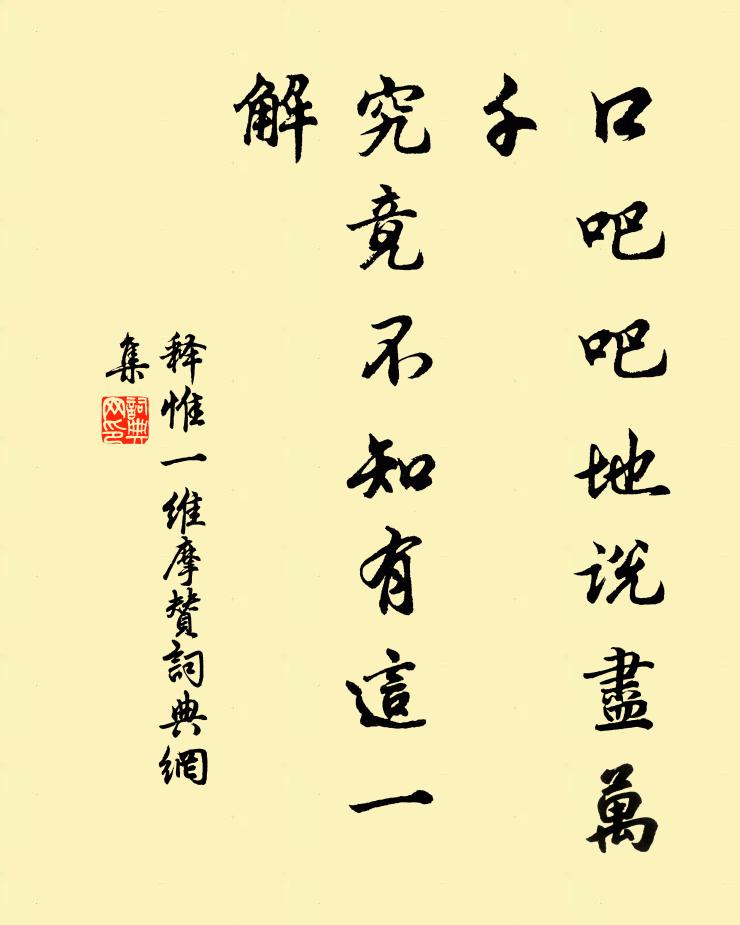 口吧吧地说盡萬
千
究竟不知有這一
解
释惟一维摩贊詞典網
集
詞典
网印